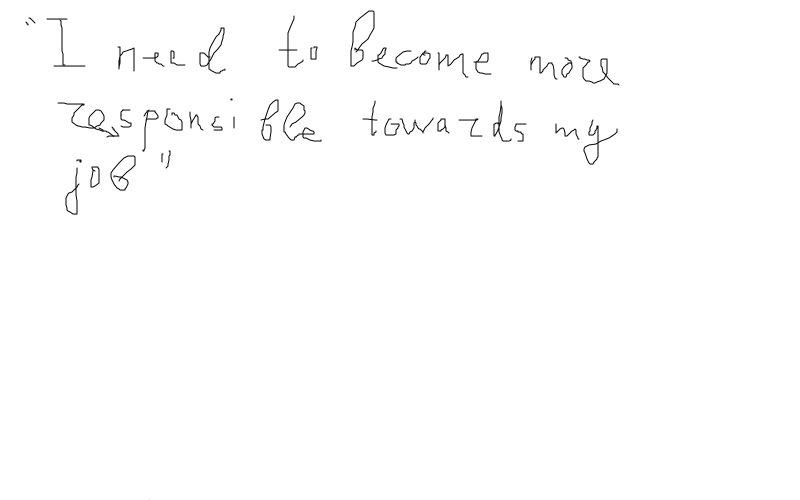 "I need to become more
responsible towards my
job"